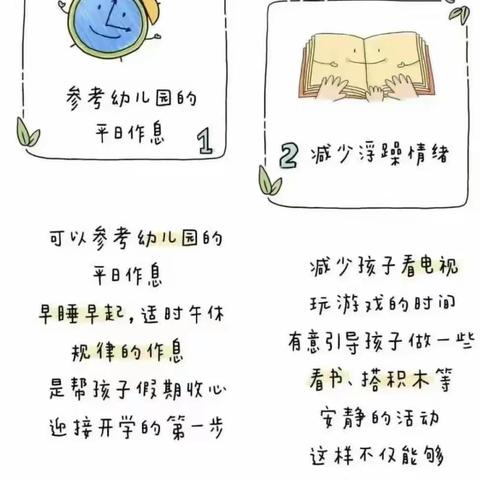 参考幼儿园的
平日作息
1
2 减少浮躁情绪
可以参考幼儿园的
平日作息
早睡早起,适时午休
规律的作息
是帮孩子假期收心
迎接开学的第一步
减少孩子看电视
玩游戏的时间
有意引导孩子做一些
看书、搭积木等
安静的活动
这样不仅能够